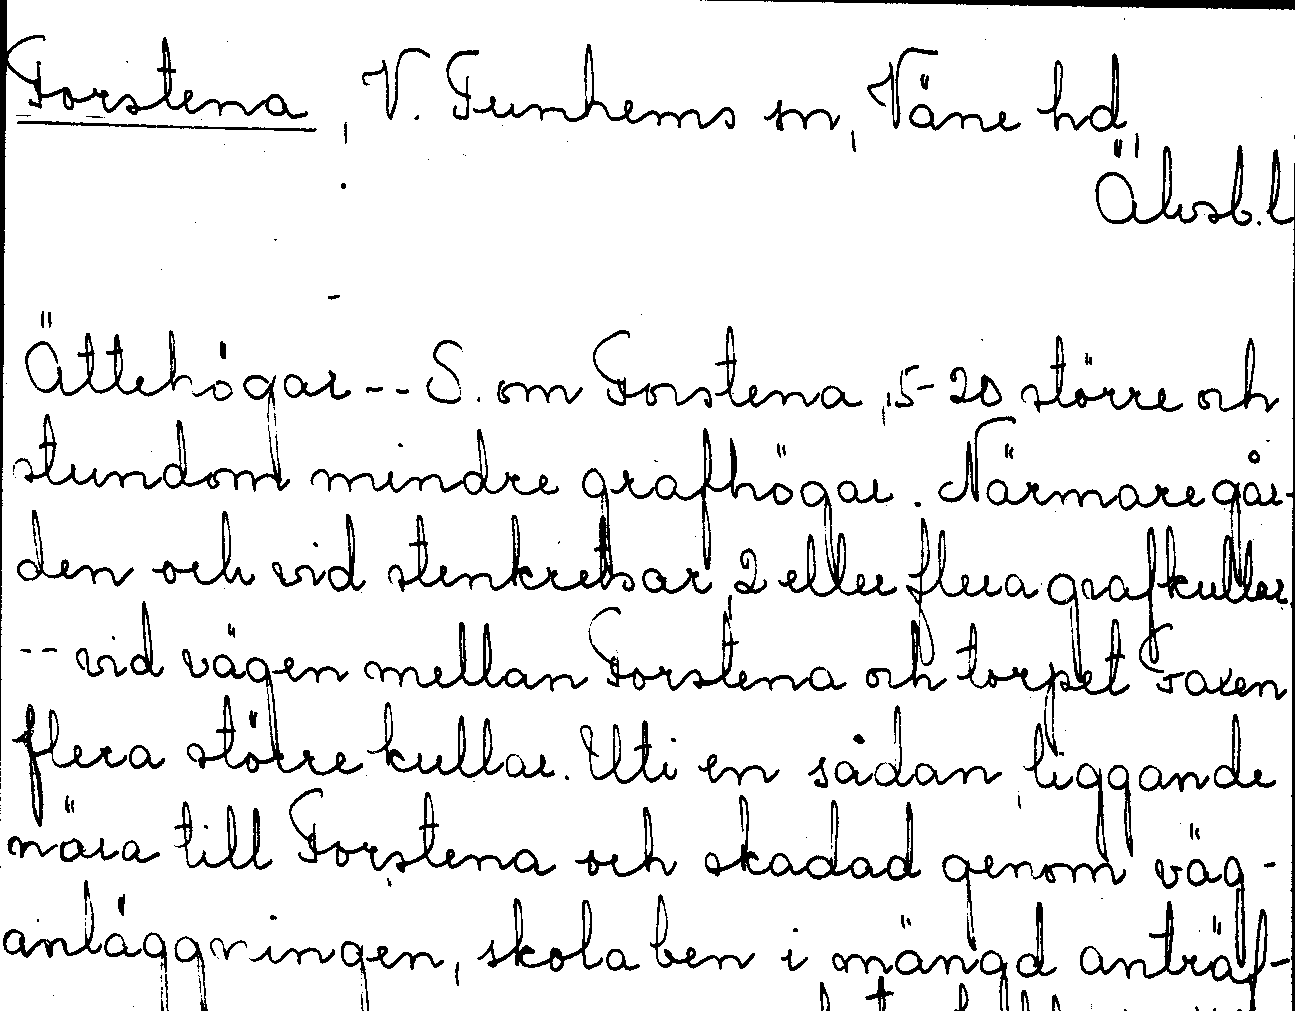 Forstena, V. Tunhems sn, Väne hd,
Älvsb.l
Ättehögar -- S. om Forstena, 5-20 större och
stundom mindre grafhögar. Närmare går-
den och vid stenkretsar, 2 eller flera grafkullar
-- vid vägen mellan Forstena och torpet Faxen
flera större kullar. Uti en sådan, liggande
nära till Forstena och skadad genom väg-
anläggningen, skola ben i mängd anträf-